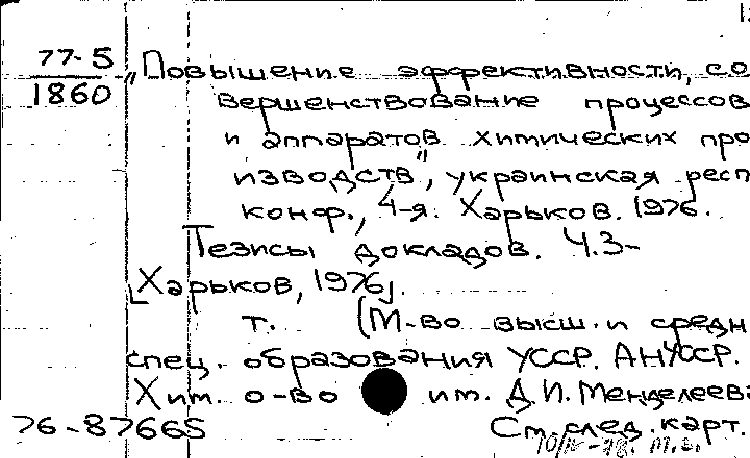 77-5
1860
„Повышение эффективности, со
вершенствование процессов
и аппаратов химических про
изводств", украинская респ
конф., 4-я. Харьков. 1976.
Тезисы докладов. Ч.3-
[Харьков, 1976].
т. (М-во высш. и средн
спец. образования УССР. АН УССР.
Хим. о-во им. Д.И. Менделеева
76-87665 См. след. карт.